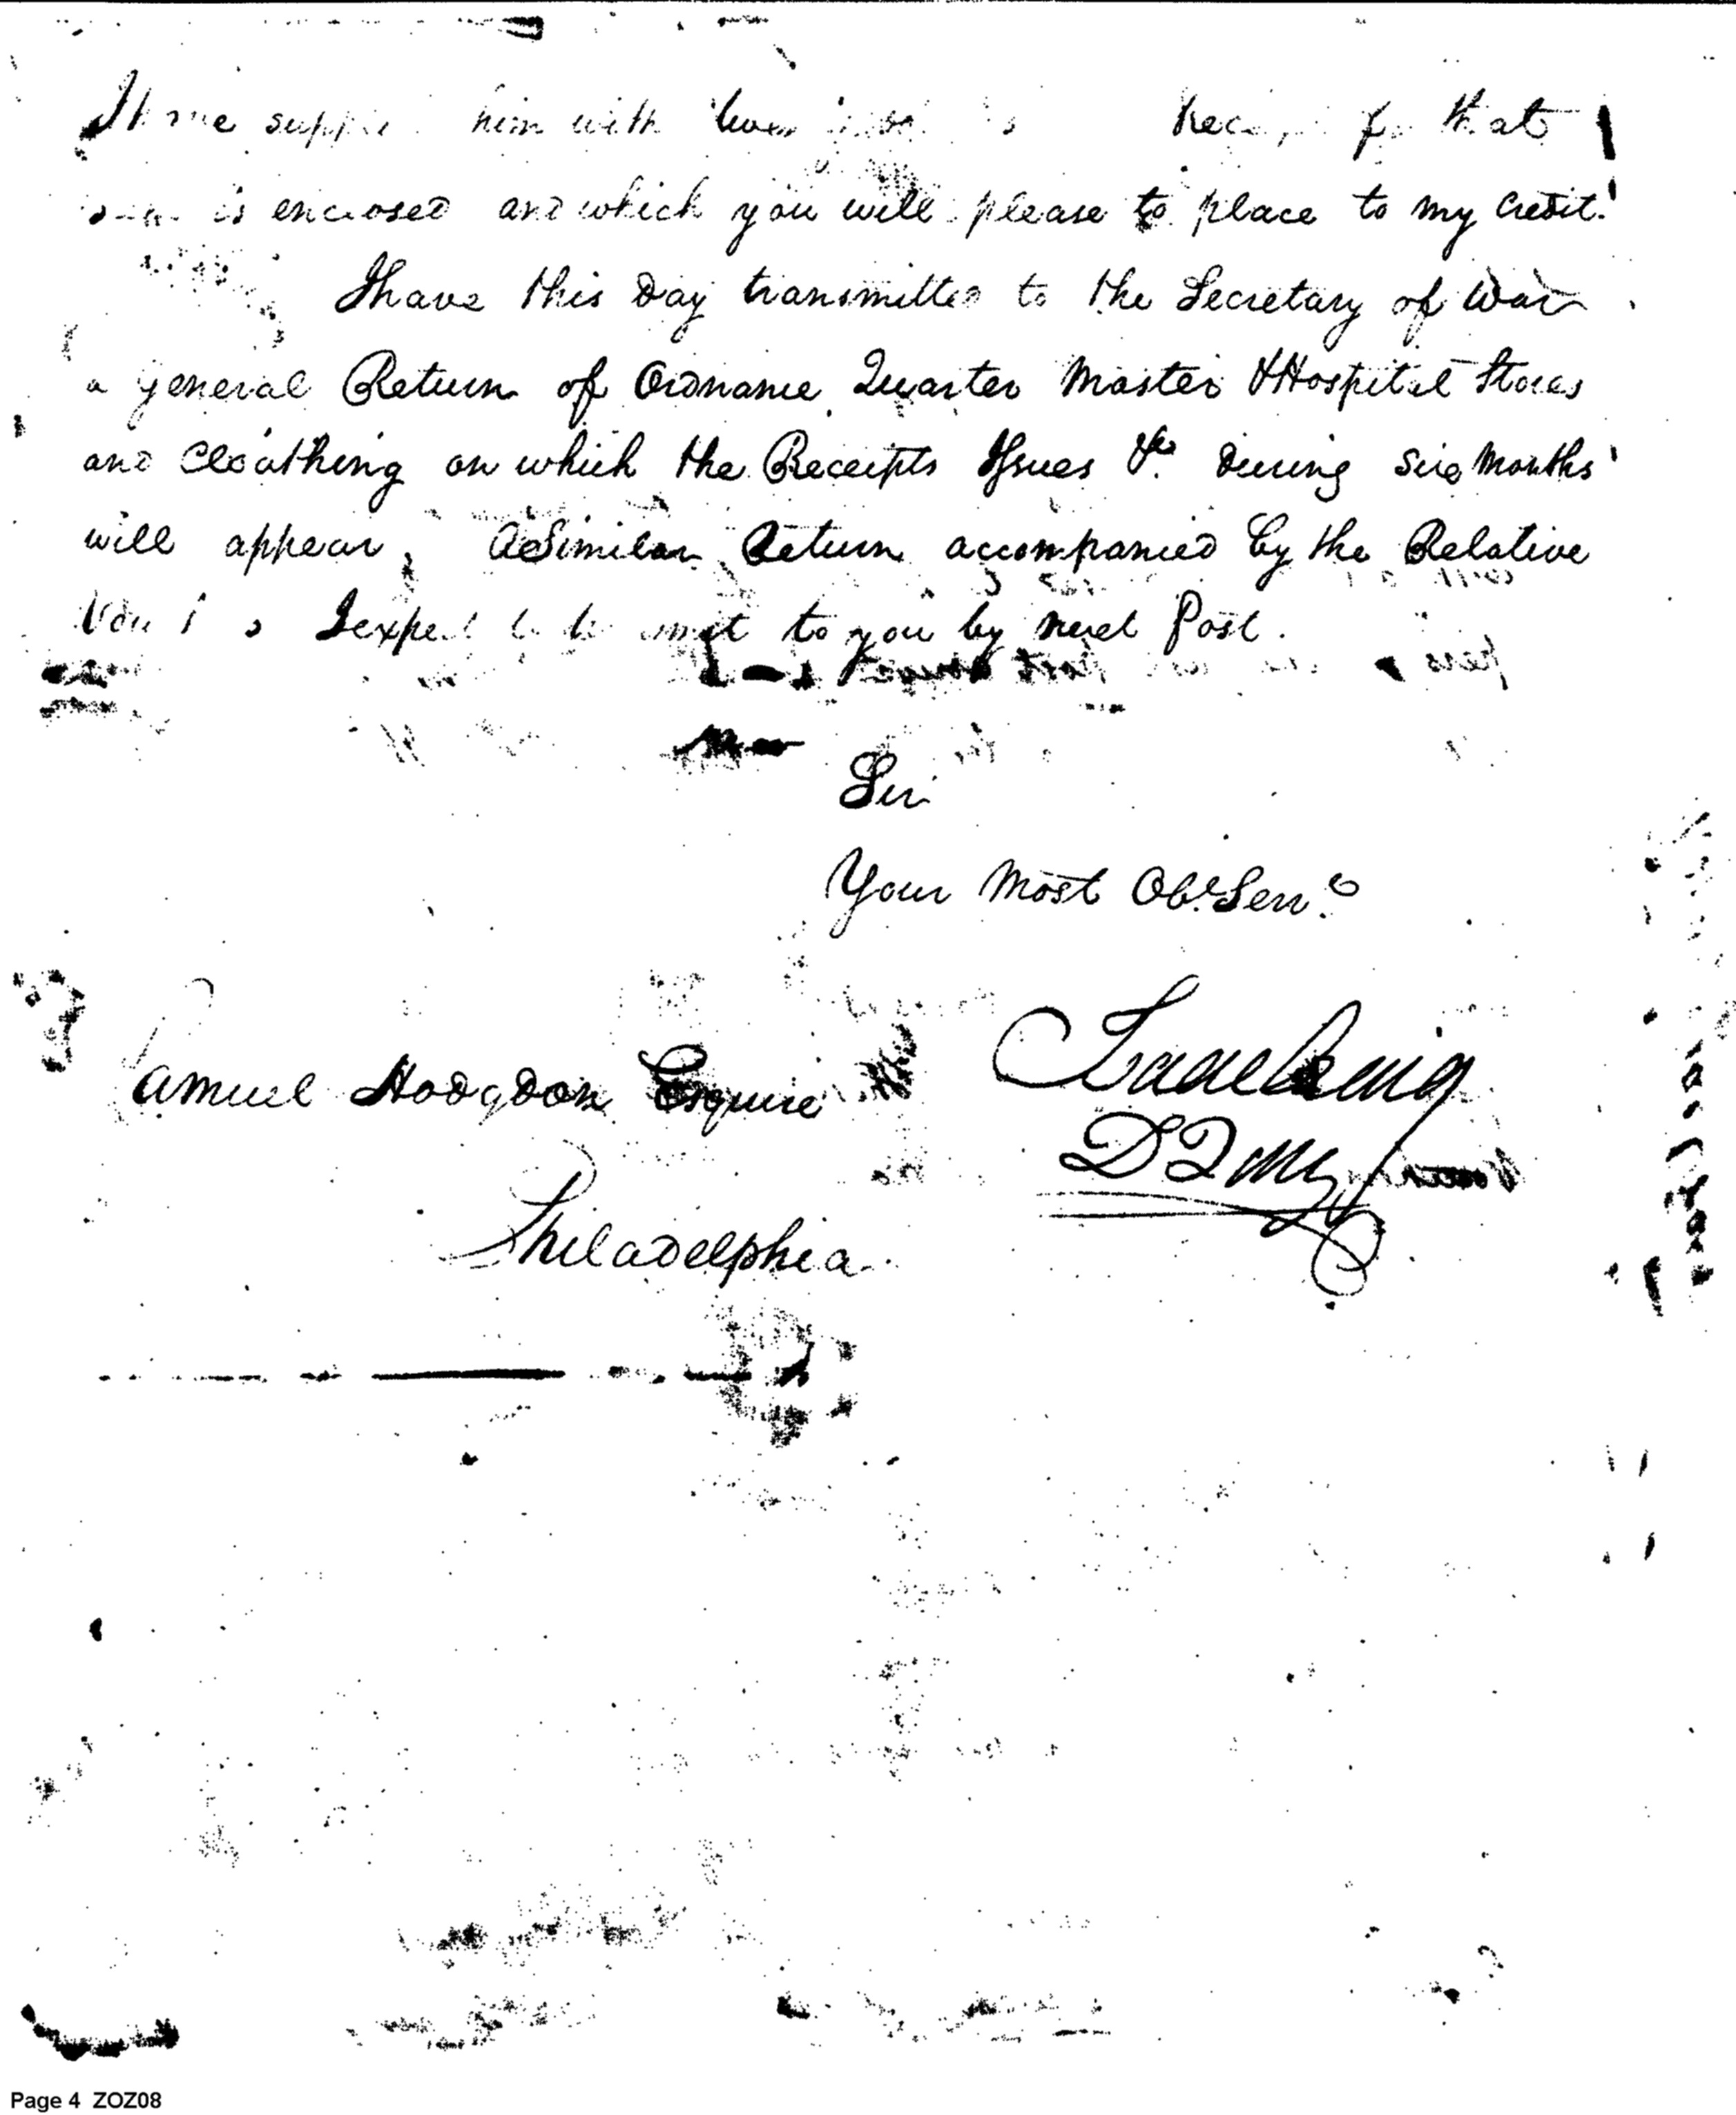 I have him with that
is enclosed and which you will please to place to my Credit.
I have this Day transmitted to the Secretary of War
a general Return of Ordnance Quarter Master & Hospital Stores
and Cloathing on which the Receipts Issues &c. During six Months
will appear, A Similar Return accompanied by the Relative
I expect to you by next Post.
Sir
Your Most Obt. Sert.
Samuel Hodgdon Esquire
Isaac Craig
DQM
Philadelphia
Page 4 ZOZ08